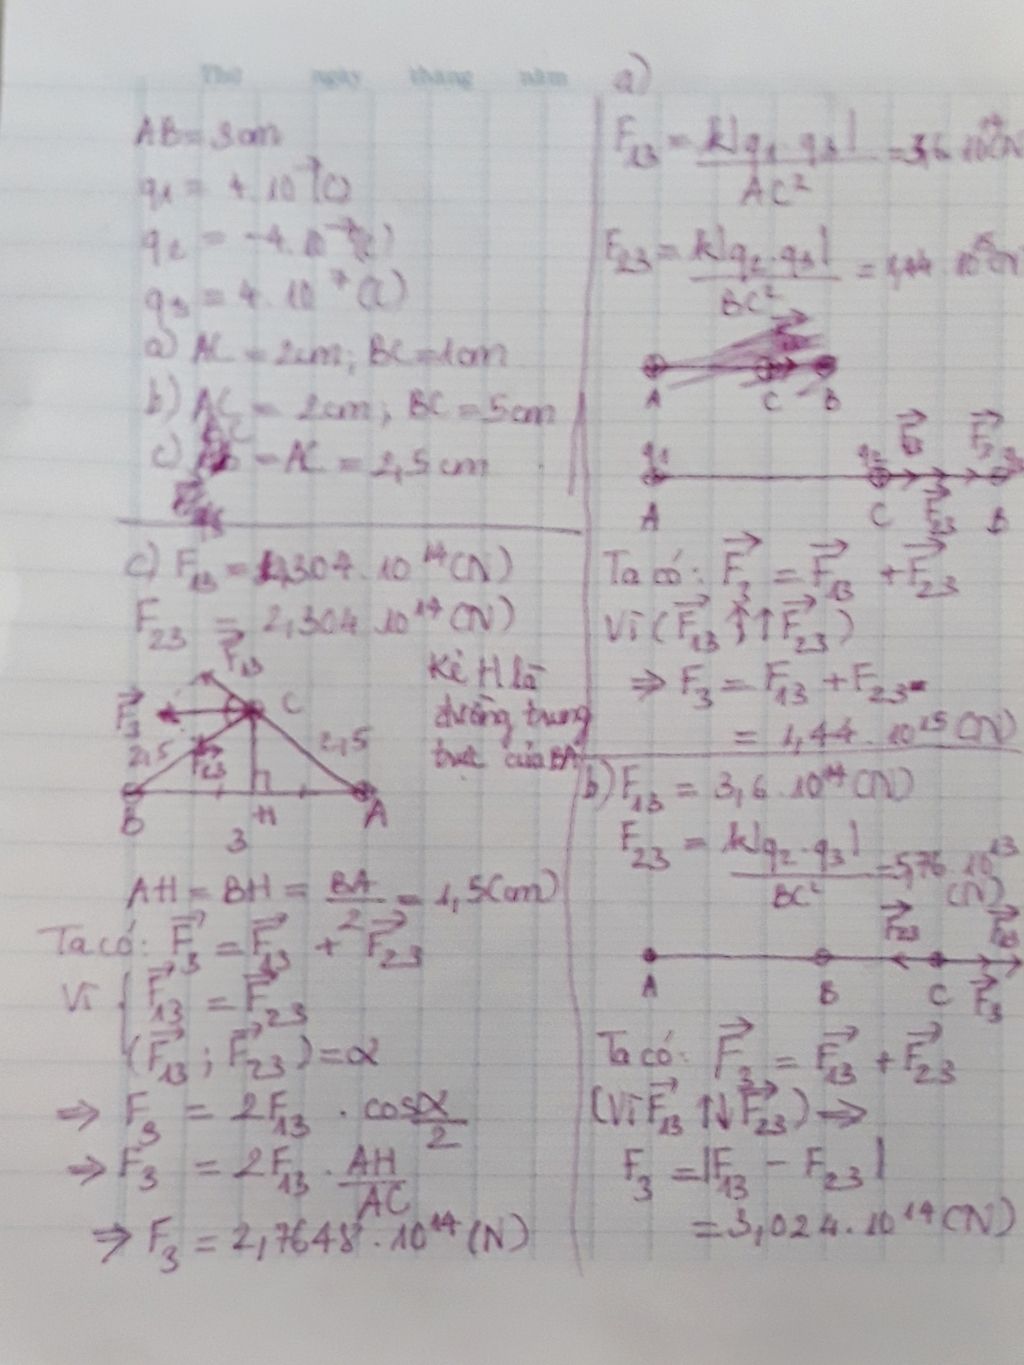 Thứ ngày tháng năm
AB = 3cm
q1 = 4.10^-7(C)
q2 = -4.10^-7(C)
q3 = 4.10^7(C)
a) AC = 2cm; BC = 1cm
b) AC = 2cm; BC = 5cm
c) BC = AC = 2,5cm
c) F13 = 2,304.10^14(N)
F23 = 2,304.10^14(N)
F13
F3
C
2,5
F23
2,5
B
H
A
3
Kẻ H là
đường trung
trực của BA
AH = BH = BA/2 = 1,5(cm)
Ta có: F3 = F13 + F23
Vì { F13 = F23
(F13; F23) = α
⇒ F3 = 2F13 . cos α/2
⇒ F3 = 2F13 . AH/AC
⇒ F3 = 2,7648.10^14(N)
a)
F13 = k|q1.q3|/AC² = 3,6.10^14(N
F23 = k|q2.q3|/BC² = 1,44.10^15(N
A C B
q1
F13
F3
A C F23 B
Ta có: F3 = F13 + F23
Vì (F13 ↑↑ F23)
⇒ F3 = F13 + F23
= 1,44.10^15(N)
b) F13 = 3,6.10^14(N)
F23 = k|q2.q3|/BC² = 5,76.10^13
(N)
F23 F13
A B C F3
Ta có: F3 = F13 + F23
(Vì F13 ↑↓ F23) →
F3 = |F13 - F23|
= 3,024.10^14(N)